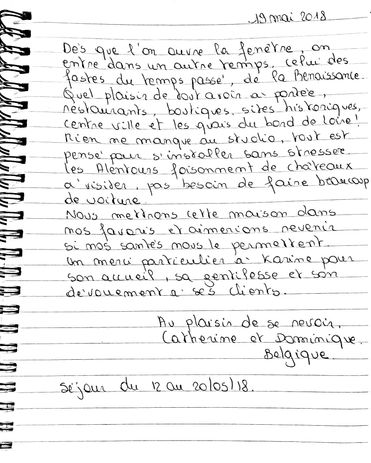 19 mai 2018
Dès que l'on ouvre la fenêtre, on
entre dans un autre temps, celui des
fastes du temps passé, de la Renaissance.
Quel plaisir de tout avoir à portée,
restaurants, boutiques, sites historiques,
centre ville et les quais du bord de Loire!
Rien me manque au studio, tout est
pensé pour s'installer sans stresser.
Les Alentours foisonnent de châteaux
à visiter, pas besoin de faire beaucoup
de voiture.
Nous mettrons cette maison dans
nos favoris et aimerions revenir
si nos santés nous le permettent.
Un merci particulier à Karine pour
son accueil, sa gentillesse et son
dévouement à ses clients.
Au plaisir de se revoir,
Catherine et Dominique.
Belgique.
Séjour du 12 au 20/05/18.